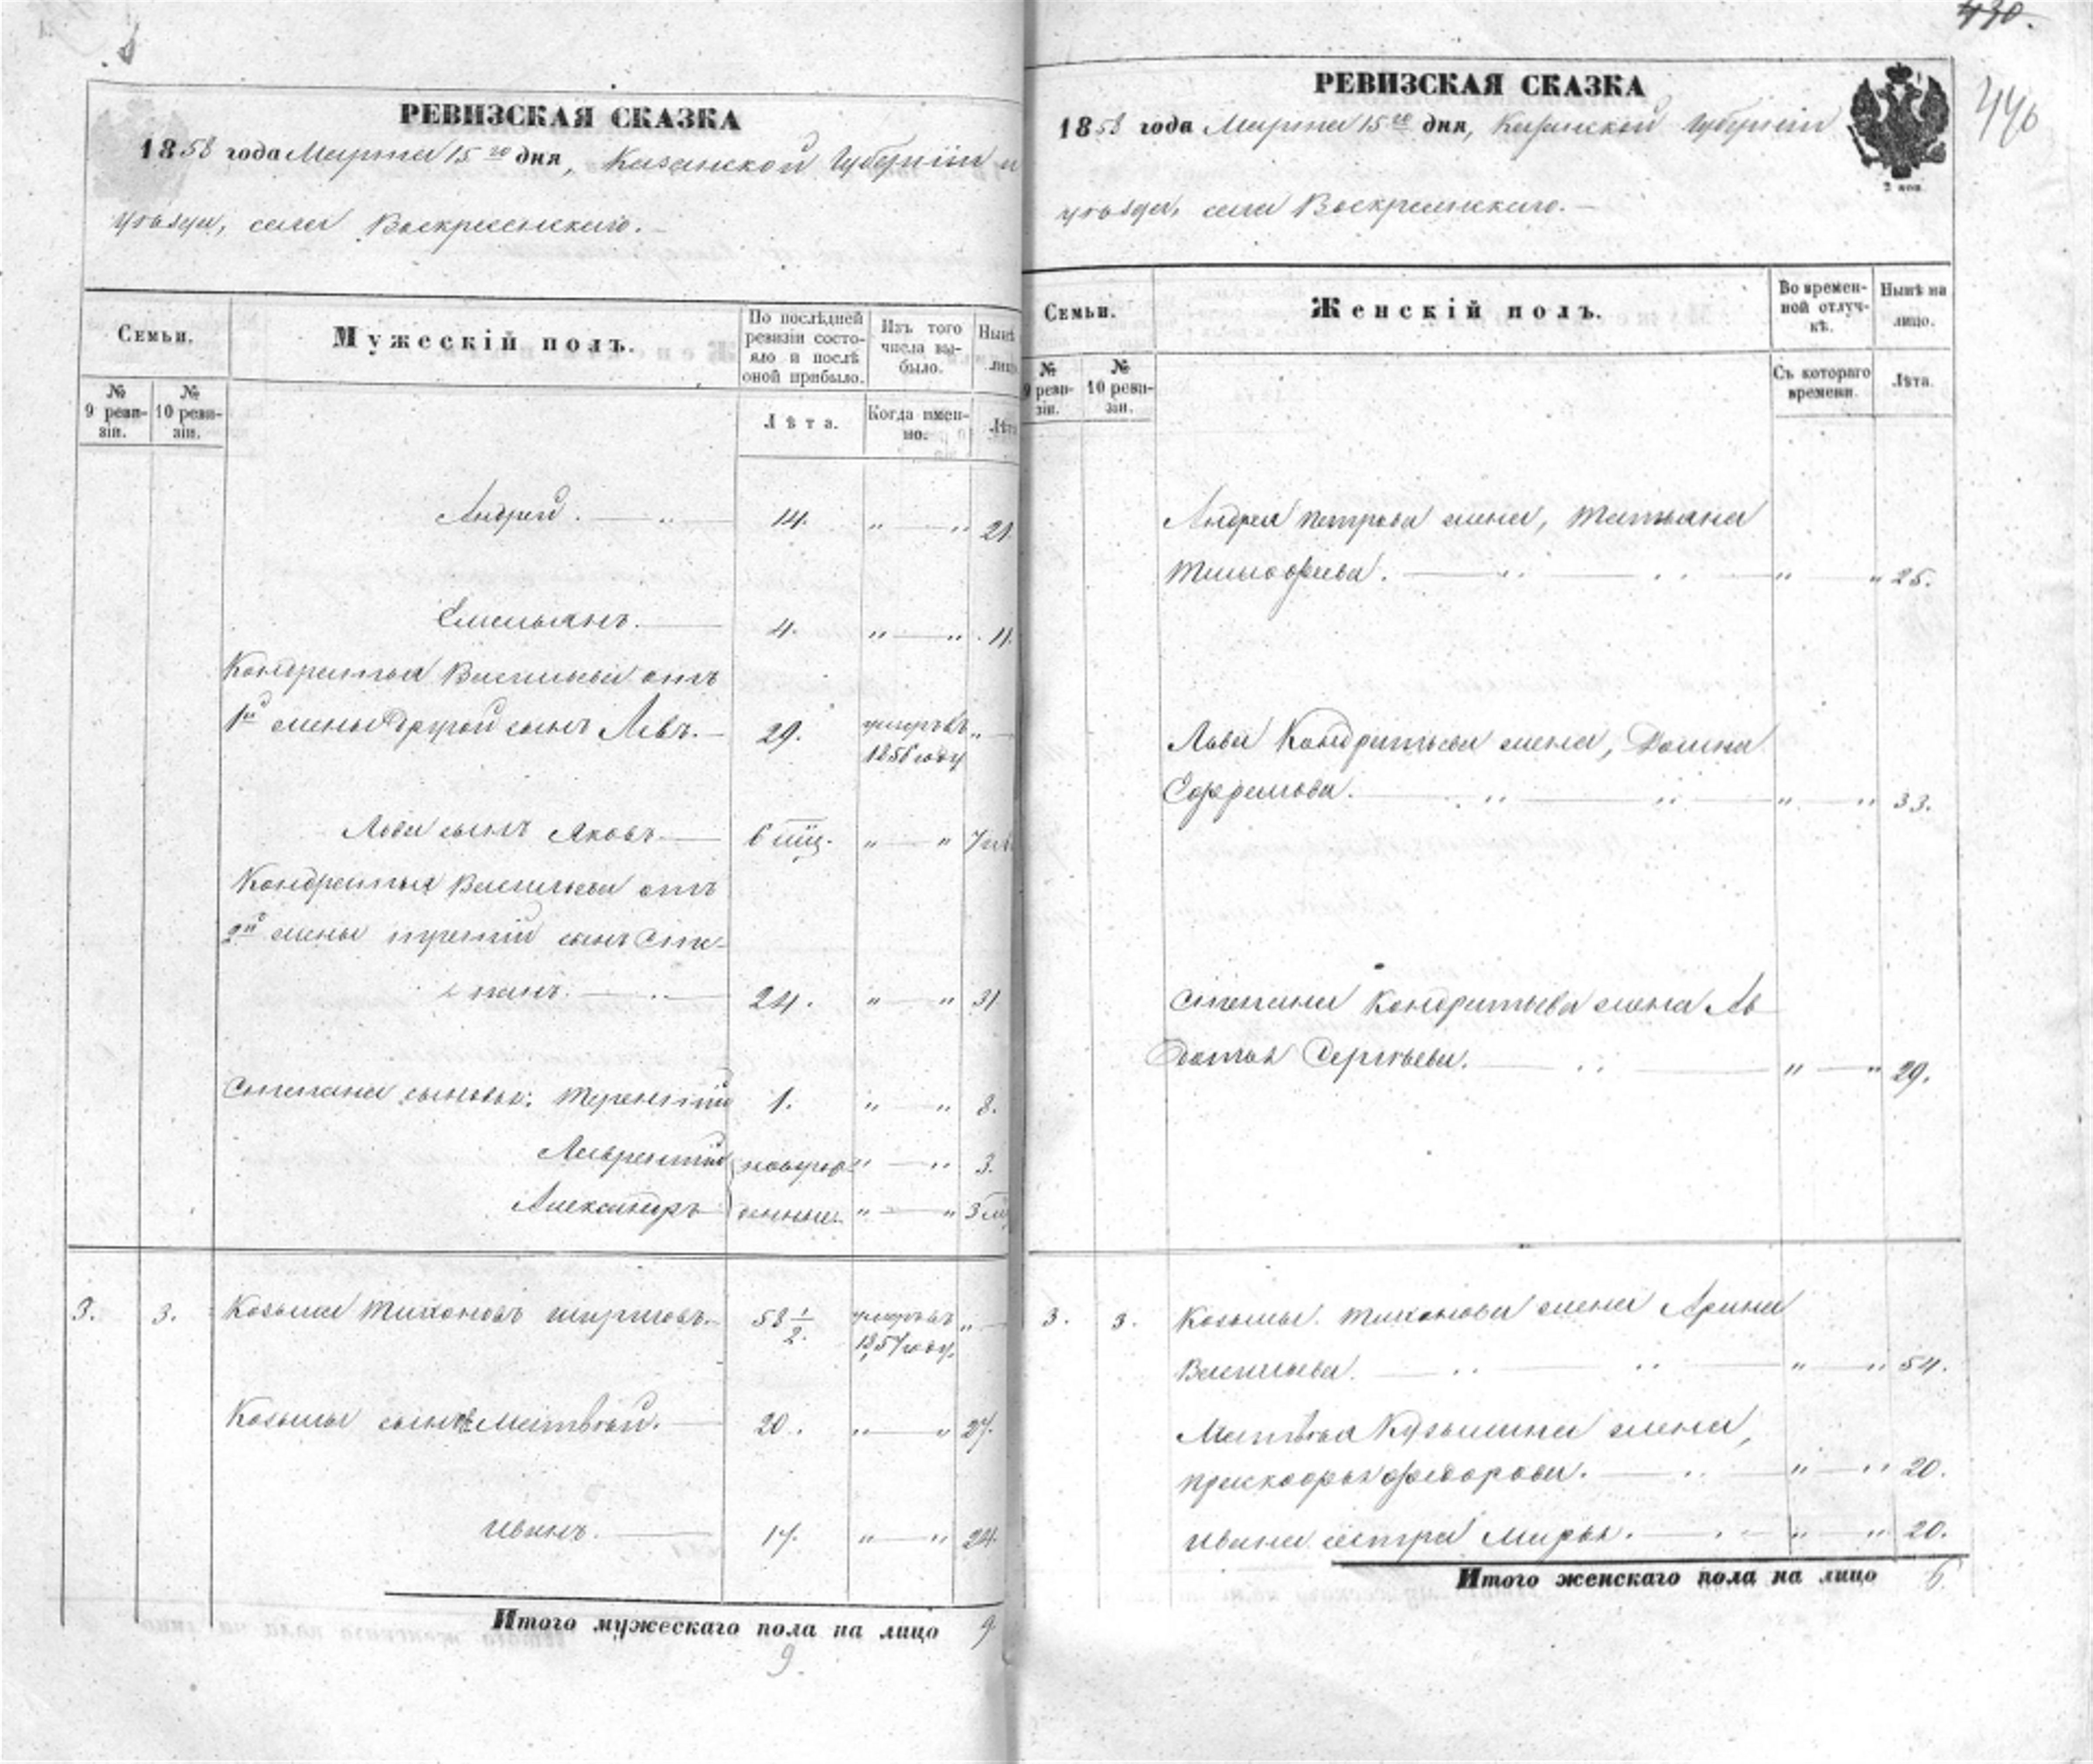 430.
446
РЕВИЗСКАЯ СКАЗКА
1858 года Марта 15го дня, Казанской Губернiи и
уѣзда, села Воскресенскаго.
Семьи.
Мужескiй полъ.
По послѣдней ревизiи состояло и послѣ оной прибыло.
Изъ того числа выбыло.
Нынѣ
лицо
№ 9 ревизiи.
№ 10 ревизiи.
Лѣта.
Когда именно.
Лѣта
Андрей. 14. " " 21.
Емельянъ. 4. " " 11.
Кондратья Васильева отъ
1й жены другой сынъ Левъ. 29. умеръ въ 1856 году "
Льва сынъ Яковъ 6 мц. " " 7
Кондратья Васильева отъ
2й жены третiй сынъ Сте-
панъ. 24. " " 31
Степана сыновья: Терентiй 1. " " 8.
Лаврентiй новорож " " 3.
Александръ денные " " 3 м
3. 3. Козьма Тихоновъ Ширшовъ. 58 1/2. умеръ въ 1857 году. "
Козьмы сынъ Матвѣй. 20. " " 27.
Иванъ. 17. " " 24.
Итого мужескаго пола на лицо 9.
9.
РЕВИЗСКАЯ СКАЗКА
1858 года Марта 15го дня, Казанской Губернiи
2 коп
уѣзда, села Воскресенскаго.
Семьи.
Женскiй полъ.
Во временной отлучкѣ.
Нынѣ на лицо.
№ 9 ревизiи.
№ 10 ревизiи.
Съ котораго времени.
Лѣта.
Андрея Петрова жена, Татьяна
Тимофеева. " " 25.
Льва Кондратьева жена, Домна
Ефремова. " " 33.
Степана Кондратьева жена Ав
дотья Сергѣева. " " 29.
3. 3. Козьмы Тихонова жена Арина
Васильева. " " 54.
Матвѣя Кузьмина жена,
Прасковья Федорова. " " 20.
Ивана сестра Марья. " " 20.
Итого женскаго пола на лицо 6.